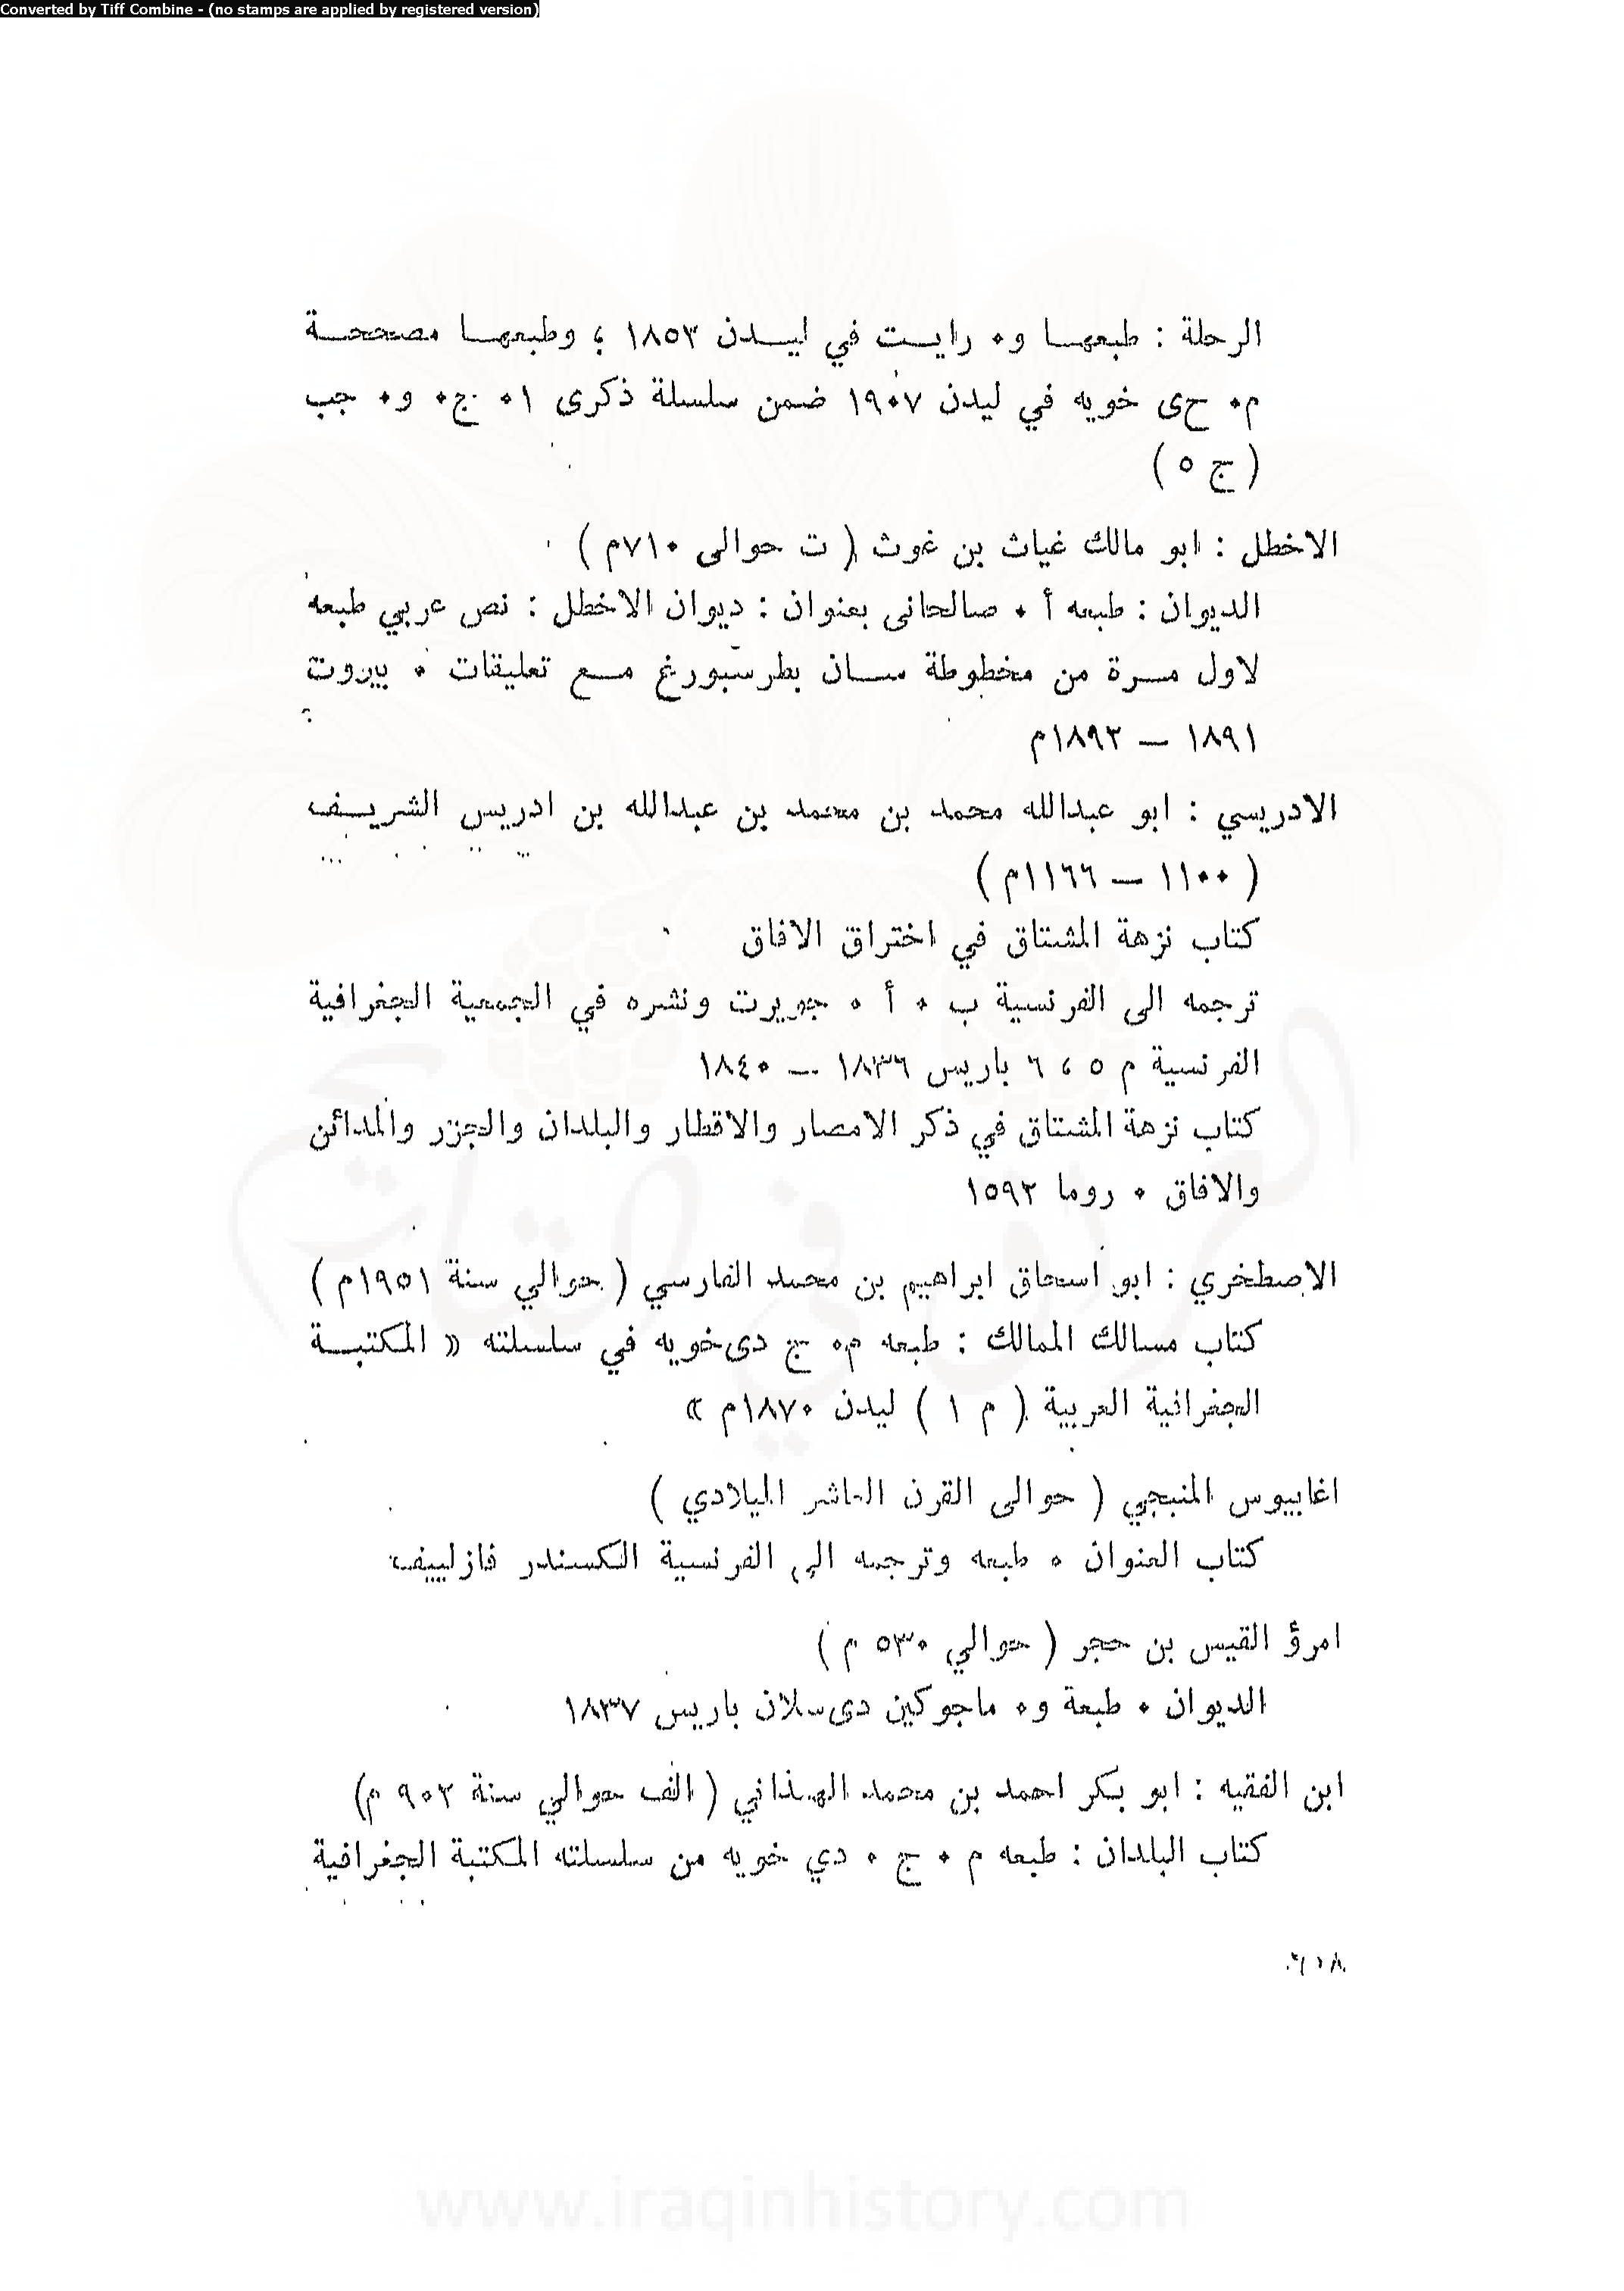 Converted by Tiff Combine - (no stamps are applied by registered version)
الرحلة : طبعهـا و٠ رايـت في ليـدن ١٨٥٣ ؛ وطبعهـا مصححـة
م٠ حى خويه في ليدن ١٩٠٧ ضمن سلسلة ذكرى ا٠ ج٠ و٠ جب
( ج ٥ )
الاخطل : ابو مالك غياث بن غوث ( ت حوالى ٧١٠م )
الديوان : طبعه أ ٠ صالحانى بعنوان : ديوان الاخطل : نص عربي طبعه
لاول مـرة من مخطوطة سـان بطرسبورغ مـع تعليقات ٠ بيروت
١٨٩١ – ١٨٩٢م
الادريسي : ابو عبدالله محمد بن محمد بن عبدالله بن ادريس الشريـف
( ١١٠٠ – ١١٦٦م )
كتاب نزهة المشتاق في اختراق الافاق
ترجمه الى الفرنسية ب ٠ أ ٠ جويرت ونشره في الجمعية الجغرافية
الفرنسية م ٥ ، ٦ باريس ١٨٣٦ – ١٨٤٠
كتاب نزهة المشتاق في ذكر الامصار والاقطار والبلدان والجزر والمدائن
والافاق ٠ روما ١٥٩٢
الاصطخري : ابو اسحاق ابراهيم بن محمد الفارسي ( حوالي سنة ١٩٥١م )
كتاب مسالك الممالك : طبعه م٠ ج دى خويه في سلسلته « المكتبـة
الجغرافية العربية ( م ١ ) ليدن ١٨٧٠م »
اغابيوس المنبجي ( حوالى القرن العاشر الميلادي )
كتاب العنوان ٠ طبعه وترجمه الى الفرنسية الكسندر فازلييف
امرؤ القيس بن حجر ( حوالي ٥٣٠ م )
الديوان ٠ طبعة و٠ ماجوكين دى سلان باريس ١٨٣٧
ابن الفقيه : ابو بكر احمد بن محمد الهمذاني ( الف حوالي سنة ٩٠٢ م)
كتاب البلدان : طبعه م ٠ ج ٠ دي خويه من سلسلته المكتبة الجغرافية
www.iraqinhistory.com